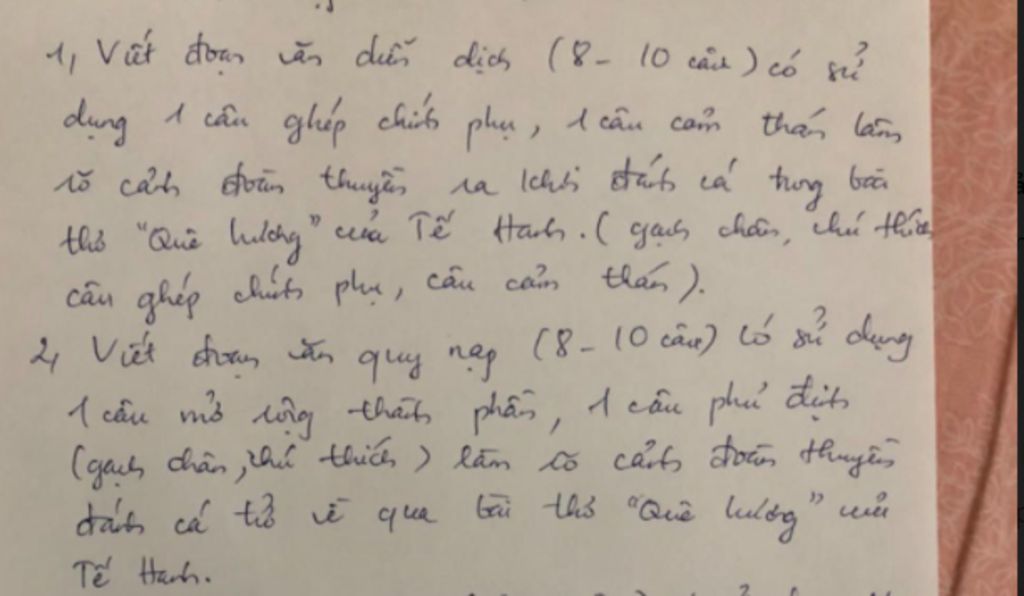 1, Viết đoạn văn diễn dịch (8 - 10 câu) có sử
dụng 1 câu ghép chính phụ, 1 câu cảm thán làm
rõ cảnh đoàn thuyền ra khơi đánh cá trong bài
thơ "Quê hương" của Tế Hanh. (gạch chân, chú thích
câu ghép chính phụ, câu cảm thán).
2, Viết đoạn văn quy nạp (8 - 10 câu) có sử dụng
1 câu mở rộng thành phần, 1 câu phủ định
(gạch chân, chú thích) làm rõ cảnh đoàn thuyền
đánh cá trở về qua bài thơ "Quê hương" của
Tế Hanh.